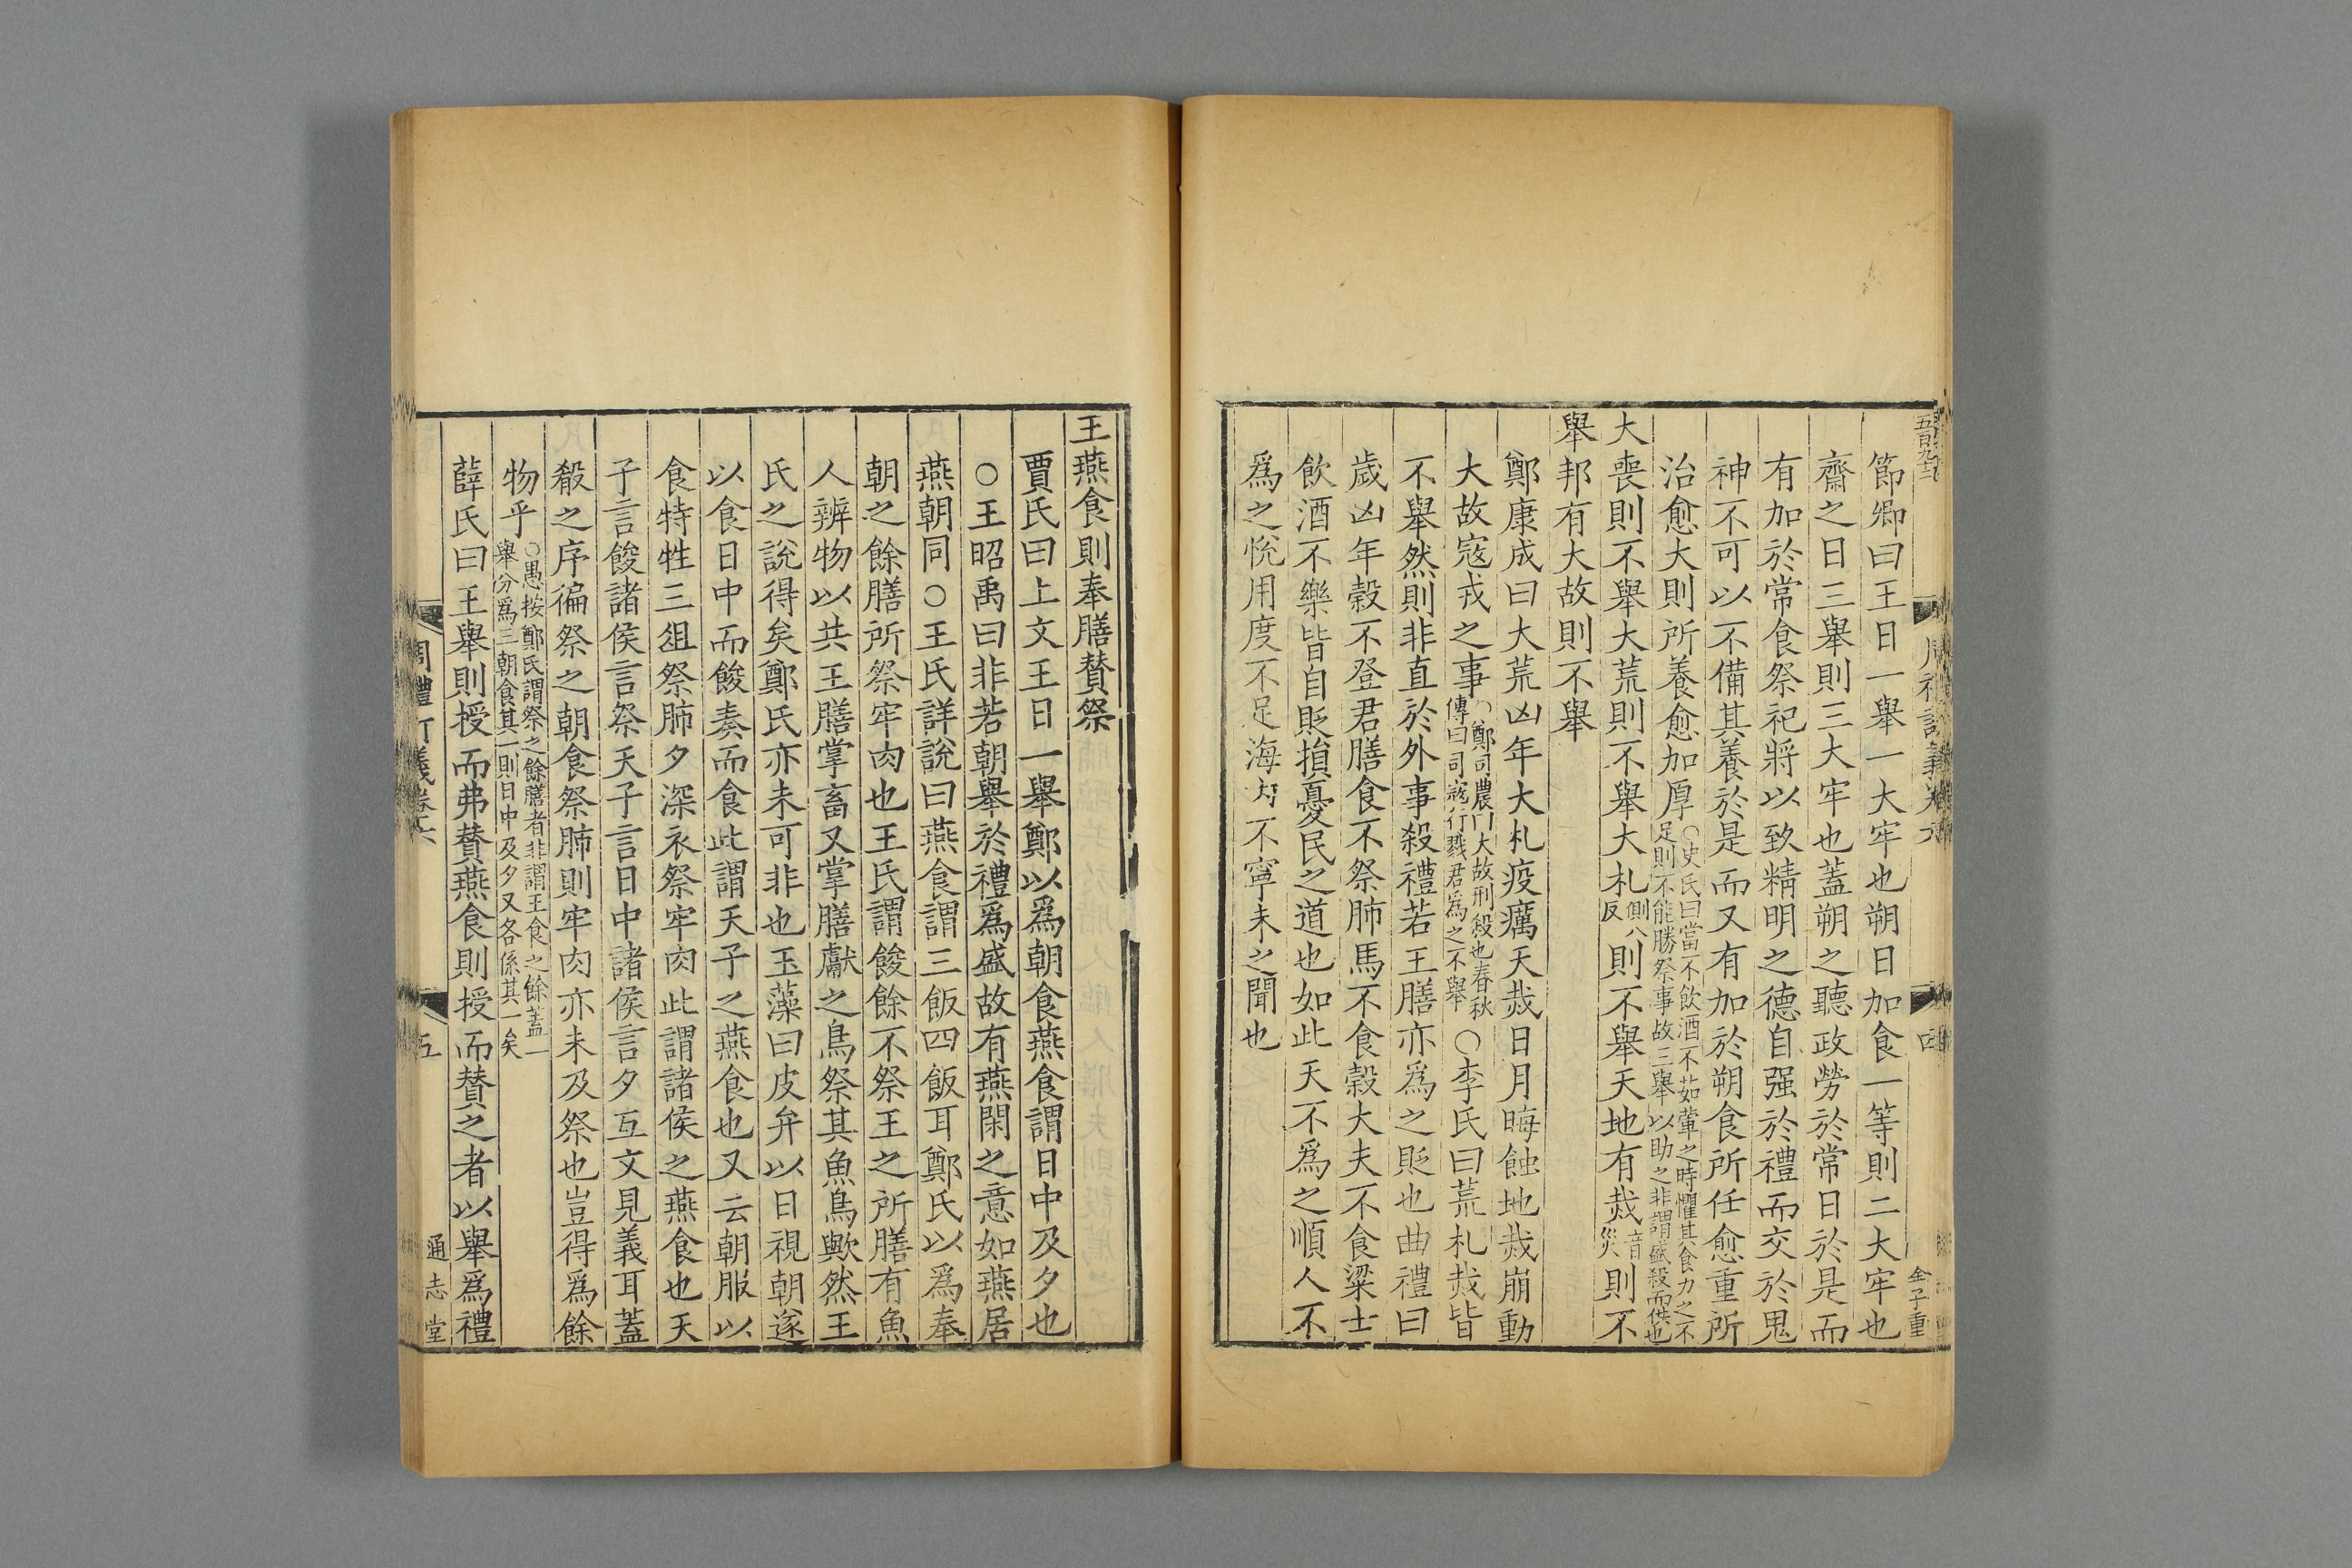 節卿曰王日一舉一大牢也朔日加食一等則二大牢也
齋之日三舉則三大牢也蓋朔之聽政勞於常日於是而
有加於常食祭祀將以致精明之德自强於禮而交於鬼
神不可以不備其養於是而又有加於朔食所任愈重所
治愈大則所養愈加厚○史氏曰當不飲酒不茹葷之時懼其食力之不
足則不能勝祭事故三舉以助之非謂盛殺而供也
大喪則不舉大荒則不舉大札側八反則不舉天地有烖音災則不
舉邦有大故則不舉
鄭康成曰大荒凶年大札疫癘天烖日月晦蝕地烖崩動
大故寇戎之事○鄭司農曰大故刑殺也春秋
傳曰司寇行戮君為之不舉
○李氏曰荒札烖皆
不舉然則非直於外事殺禮若王膳亦爲之貶也曲禮曰
歲凶年榖不登君膳食不祭肺馬不食榖大夫不食粱士
飲酒不樂皆自貶損憂民之道也如此天不爲之順人不
爲之悅用度不足海内不寧未之聞也
金子重
王燕食則奉膳贊祭
賈氏曰上文王日一舉鄭以爲朝食燕食謂日中及夕也
○王昭禹曰非若朝舉於禮爲盛故有燕閑之意如燕居
燕朝同○王氏詳說曰燕食謂三飯四飯耳鄭氏以爲奉
朝之餘膳所祭牢肉也王氏謂餕餘不祭王之所膳有魚
人辨物以共王膳掌畜又掌膳獻之鳥祭其魚鳥歟然王
氏之說得矣鄭氏亦未可非也玉藻曰皮弁以日視朝遂
以食日中而餕奏而食此謂天子之燕食也又云朝服以
食特牲三俎祭肺夕深衣祭牢肉此謂諸侯之燕食也天
子言餕諸侯言祭天子言日中諸侯言夕互文見義耳蓋
殽之序徧祭之朝食祭肺則牢肉亦未及祭也豈得爲餘
物乎○愚按鄭氏謂祭之餘膳者非謂王食之餘蓋一
舉分爲三朝食其一則日中及夕又各係其一矣
薛氏曰王舉則授而弗贊燕食則授而贊之者以舉爲禮
周禮訂義卷六
五
通志堂